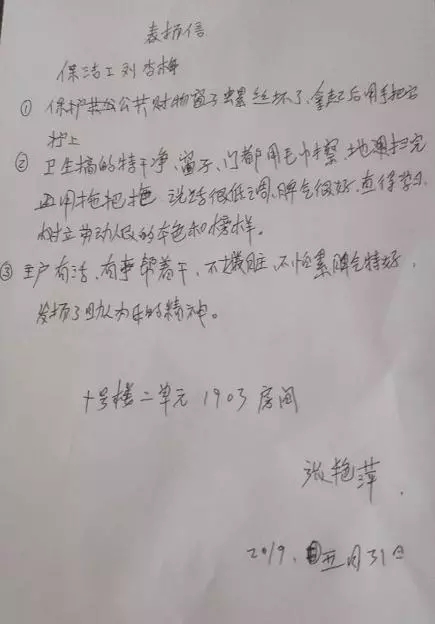 表扬信
保洁工刘杏梅
① 保护公共财物窗子螺丝坏了，拿起后用手把它
拧上
② 卫生搞的特干净、窗子、门都用毛巾擦、地扫完
用拖把拖 说话很低调、脾气很好、值得学习、
树立劳动人民的本色和榜样。
③ 业户有活、有事帮着干、不嫌脏、不怕累脾气特好、
发扬了助人为乐的精神。
十号楼二单元 1903 房间
张艳萍
2019、五月31日